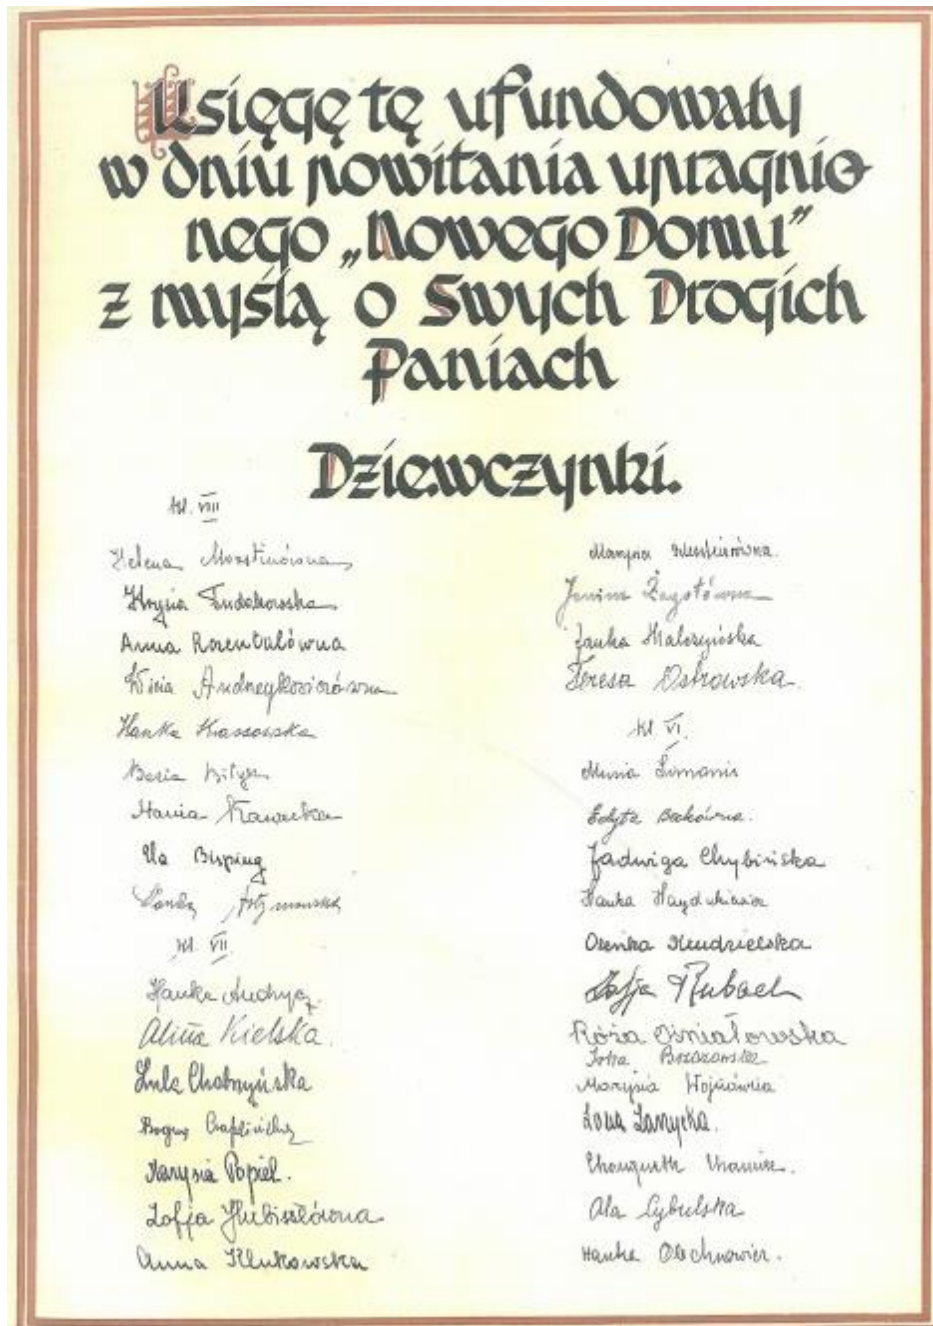 Księgę tę ufundowały
w dniu powitania upragnio
nego „Nowego Domu”
z myślą o Swych Drogich
Paniach
Dziewczynki.
kl. VIII
Helena Morstinówna
Krysia Fudakowska
Anna Rozentalówna
Wisia Andrzejkowiczówna
Hanka Krassowska
Basia
Hania Kawecka
Ula Bisping
kl. VII
Hanka Andrycz.
Alina Kielska.
Lula Chobrzyńska
Marysia Popiel.
Zofja Hubiszlówna
Anna Klukowska
Marysia
Janina Żegotówna
Janka Malczyńska
Teresa Ostrowska.
kl. VI.
Musia Limanis
Edyta Beckówna.
Jadwiga Chybińska
Hanka Haydukiewicz
Oleńka Kendzielska
Zofja Rubach
Róża Ośniałowska
Irka Brzozowska
Marysia Wojnówna
Lona Zarzycka.
Ala Cybulska
Hanka Olechnowicz.